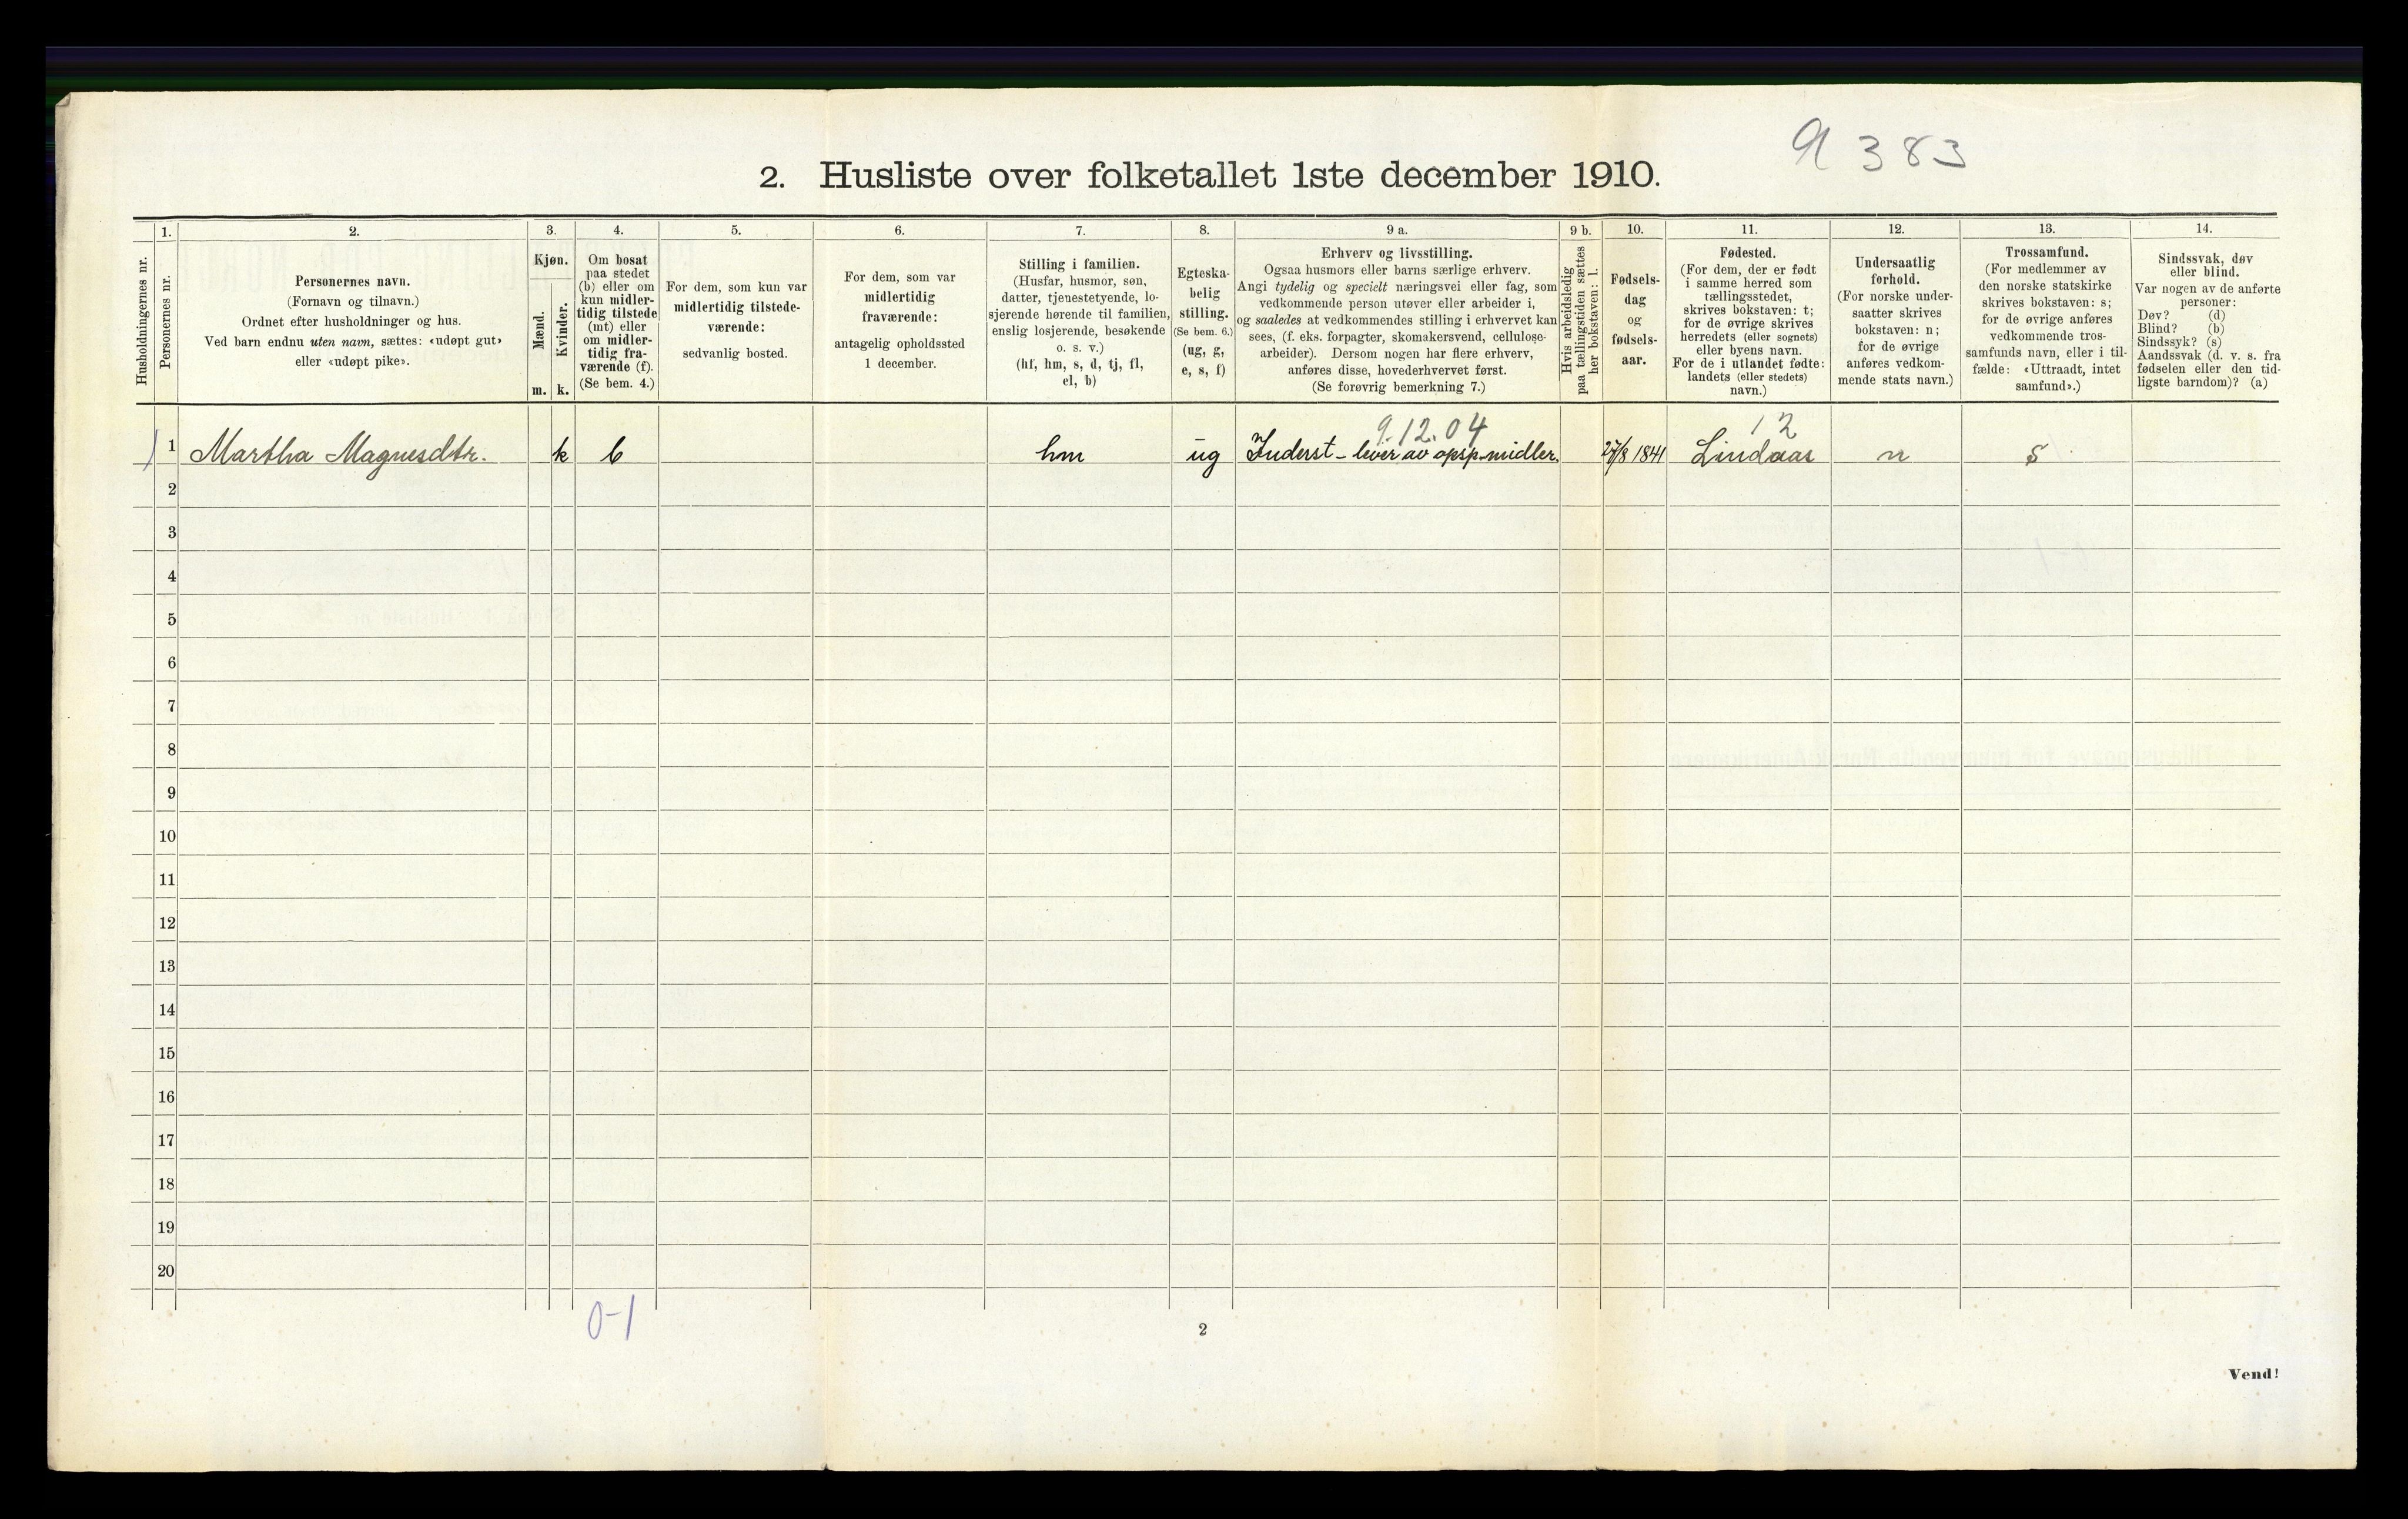 9 383
2. Husliste over folketallet 1ste december 1910.
Husholdningernes nr.
1.
Personernes nr.
2.
Personernes navn.
(Fornavn og tilnavn.)
Ordnet efter husholdninger og hus.
Ved barn endnu uten navn, sættes: «udøpt gut»
eller «udøpt pike».
3.
Kjøn.
Mænd.
m.
Kvinder.
k.
4.
Om bosat
paa stedet
(b) eller om
kun midler-
tidig tilstede
(mt) eller
om midler-
tidig fra-
værende (f).
(Se bem. 4.)
5.
For dem, som kun var
midlertidig tilstede-
værende:
sedvanlig bosted.
6.
For dem, som var
midlertidig
fraværende:
antagelig opholdssted
1 december.
7.
Stilling i familien.
(Husfar, husmor, søn,
datter, tjenestetyende, lo-
sjerende hørende til familien,
enslig losjerende, besøkende
o. s. v.)
(hf, hm, s, d, tj, fl,
el, b)
8.
Egteska-
belig
stilling.
(Se bem. 6.)
(ug, g,
e, s, f)
9 a.
Erhverv og livsstilling.
Ogsaa husmors eller barns særlige erhverv.
Angi tydelig og specielt næringsvei eller fag, som
vedkommende person utøver eller arbeider i,
og saaledes at vedkommendes stilling i erhvervet kan
sees, (f. eks. forpagter, skomakersvend, cellulose-
arbeider). Dersom nogen har flere erhverv,
anføres disse, hovederhvervet først.
(Se forøvrig bemerkning 7.)
9 b.
Hvis arbeidsledig
paa tællingstiden sættes
her bokstaven: l.
10.
Fødsels-
dag
og
fødsels-
aar.
11.
Fødested.
(For dem, der er født
i samme herred som
tællingsstedet,
skrives bokstaven: t;
for de øvrige skrives
herredets (eller sognets)
eller byens navn.
For de i utlandet fødte:
landets (eller stedets)
navn.)
12.
Undersaatlig
forhold.
(For norske under-
saatter skrives
bokstaven: n;
for de øvrige
anføres vedkom-
mende stats navn.)
13.
Trossamfund.
(For medlemmer av
den norske statskirke
skrives bokstaven: s;
for de øvrige anføres
vedkommende tros-
samfunds navn, eller i til-
fælde: «Uttraadt, intet
samfund».)
14.
Sindssvak, døv
eller blind.
Var nogen av de anførte
personer:
Døv? (d)
Blind? (b)
Sindssyk? (s)
Aandssvak (d. v. s. fra
fødselen eller den tid-
ligste barndom)? (a)
9.12.04 12
1 Martha Magnesdtr. k b hm ug Inderst - lever av opsp. midler. 27/8 1841 Lindaas n s
2
3
4
5
6
7
8
9
10
11
12
13
14
15
16
17
18
19
20
0-1
2
Vend!